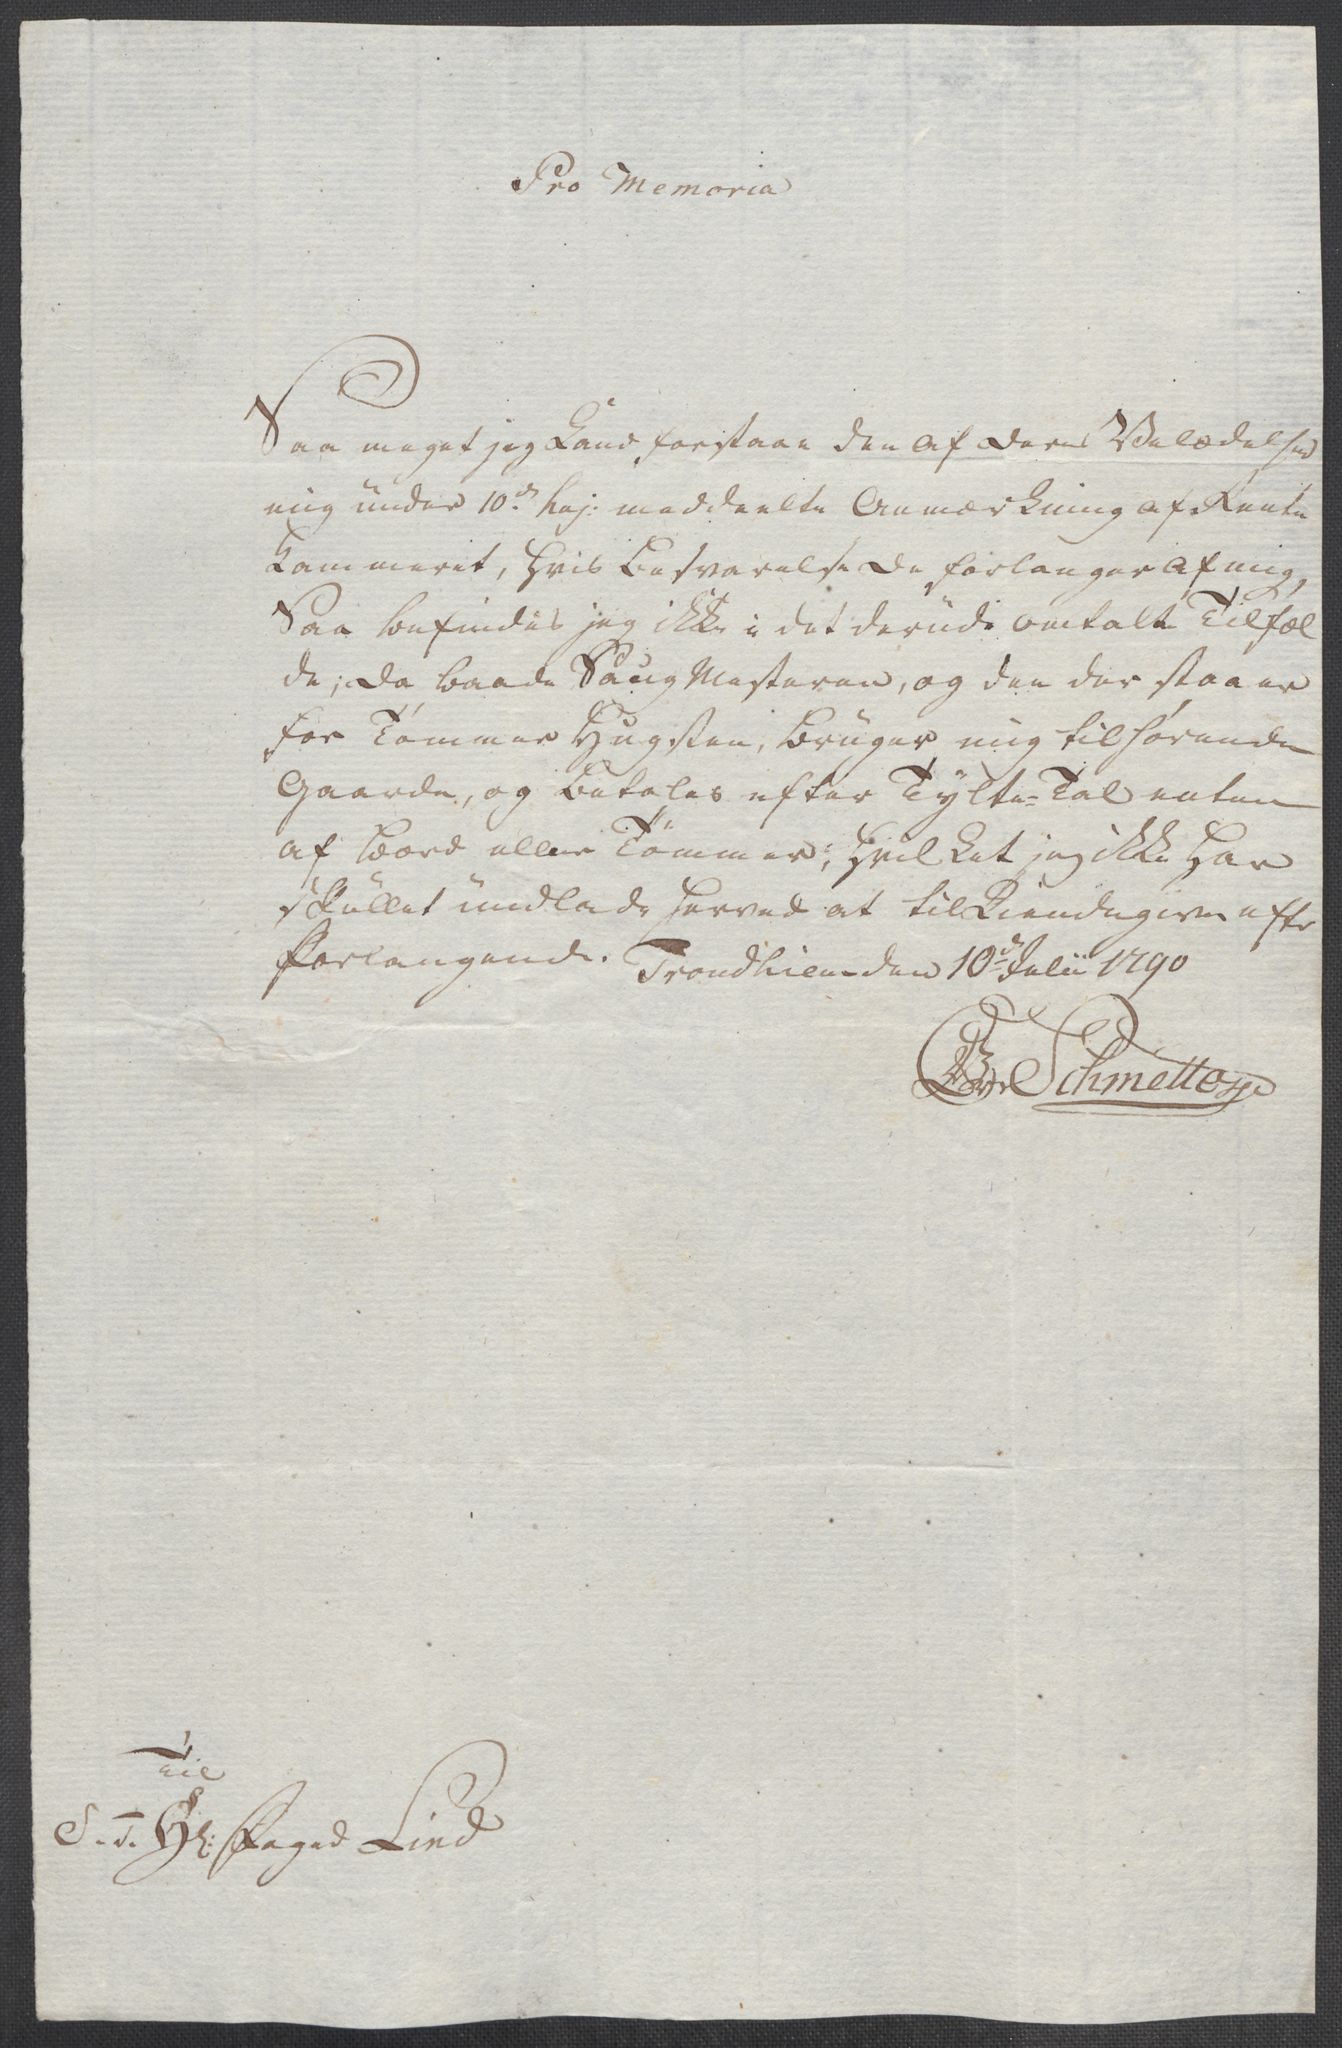 Pro Memoria
Saa meget jeg kand forstaae den af deres Velædelhed
mig under 10.de huj: meddeelte Anmærkning af Rente
Kammeret, hvis besvarelse de forlanger af mig,
Saa befindes jeg ikke i det derudi omtalte Tilfæl
de; da baade Saug Mesteren, og den der staaer
for Tømmer Hugsten, bruger mig tilhørende
Gaarde, og betales efter Tylte-Tal enten
af bord eller Tømmer; hvilket jeg ikke har
skullet undlade herved at tilkiendegive efter
forlangende. Trondhiem den 10de Julii 1790
Schmettow
Til
S. T. Hr: Foged Lind